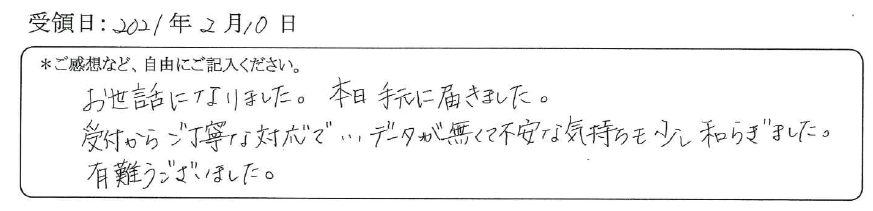 受領日：2021年2月10日
＊ご感想など、自由にご記入ください。
お世話になりました。本日手元に届きました。
受付からご丁寧な対応で…データが無くて不安な気持ちも少し和らぎました。
有難うございました。